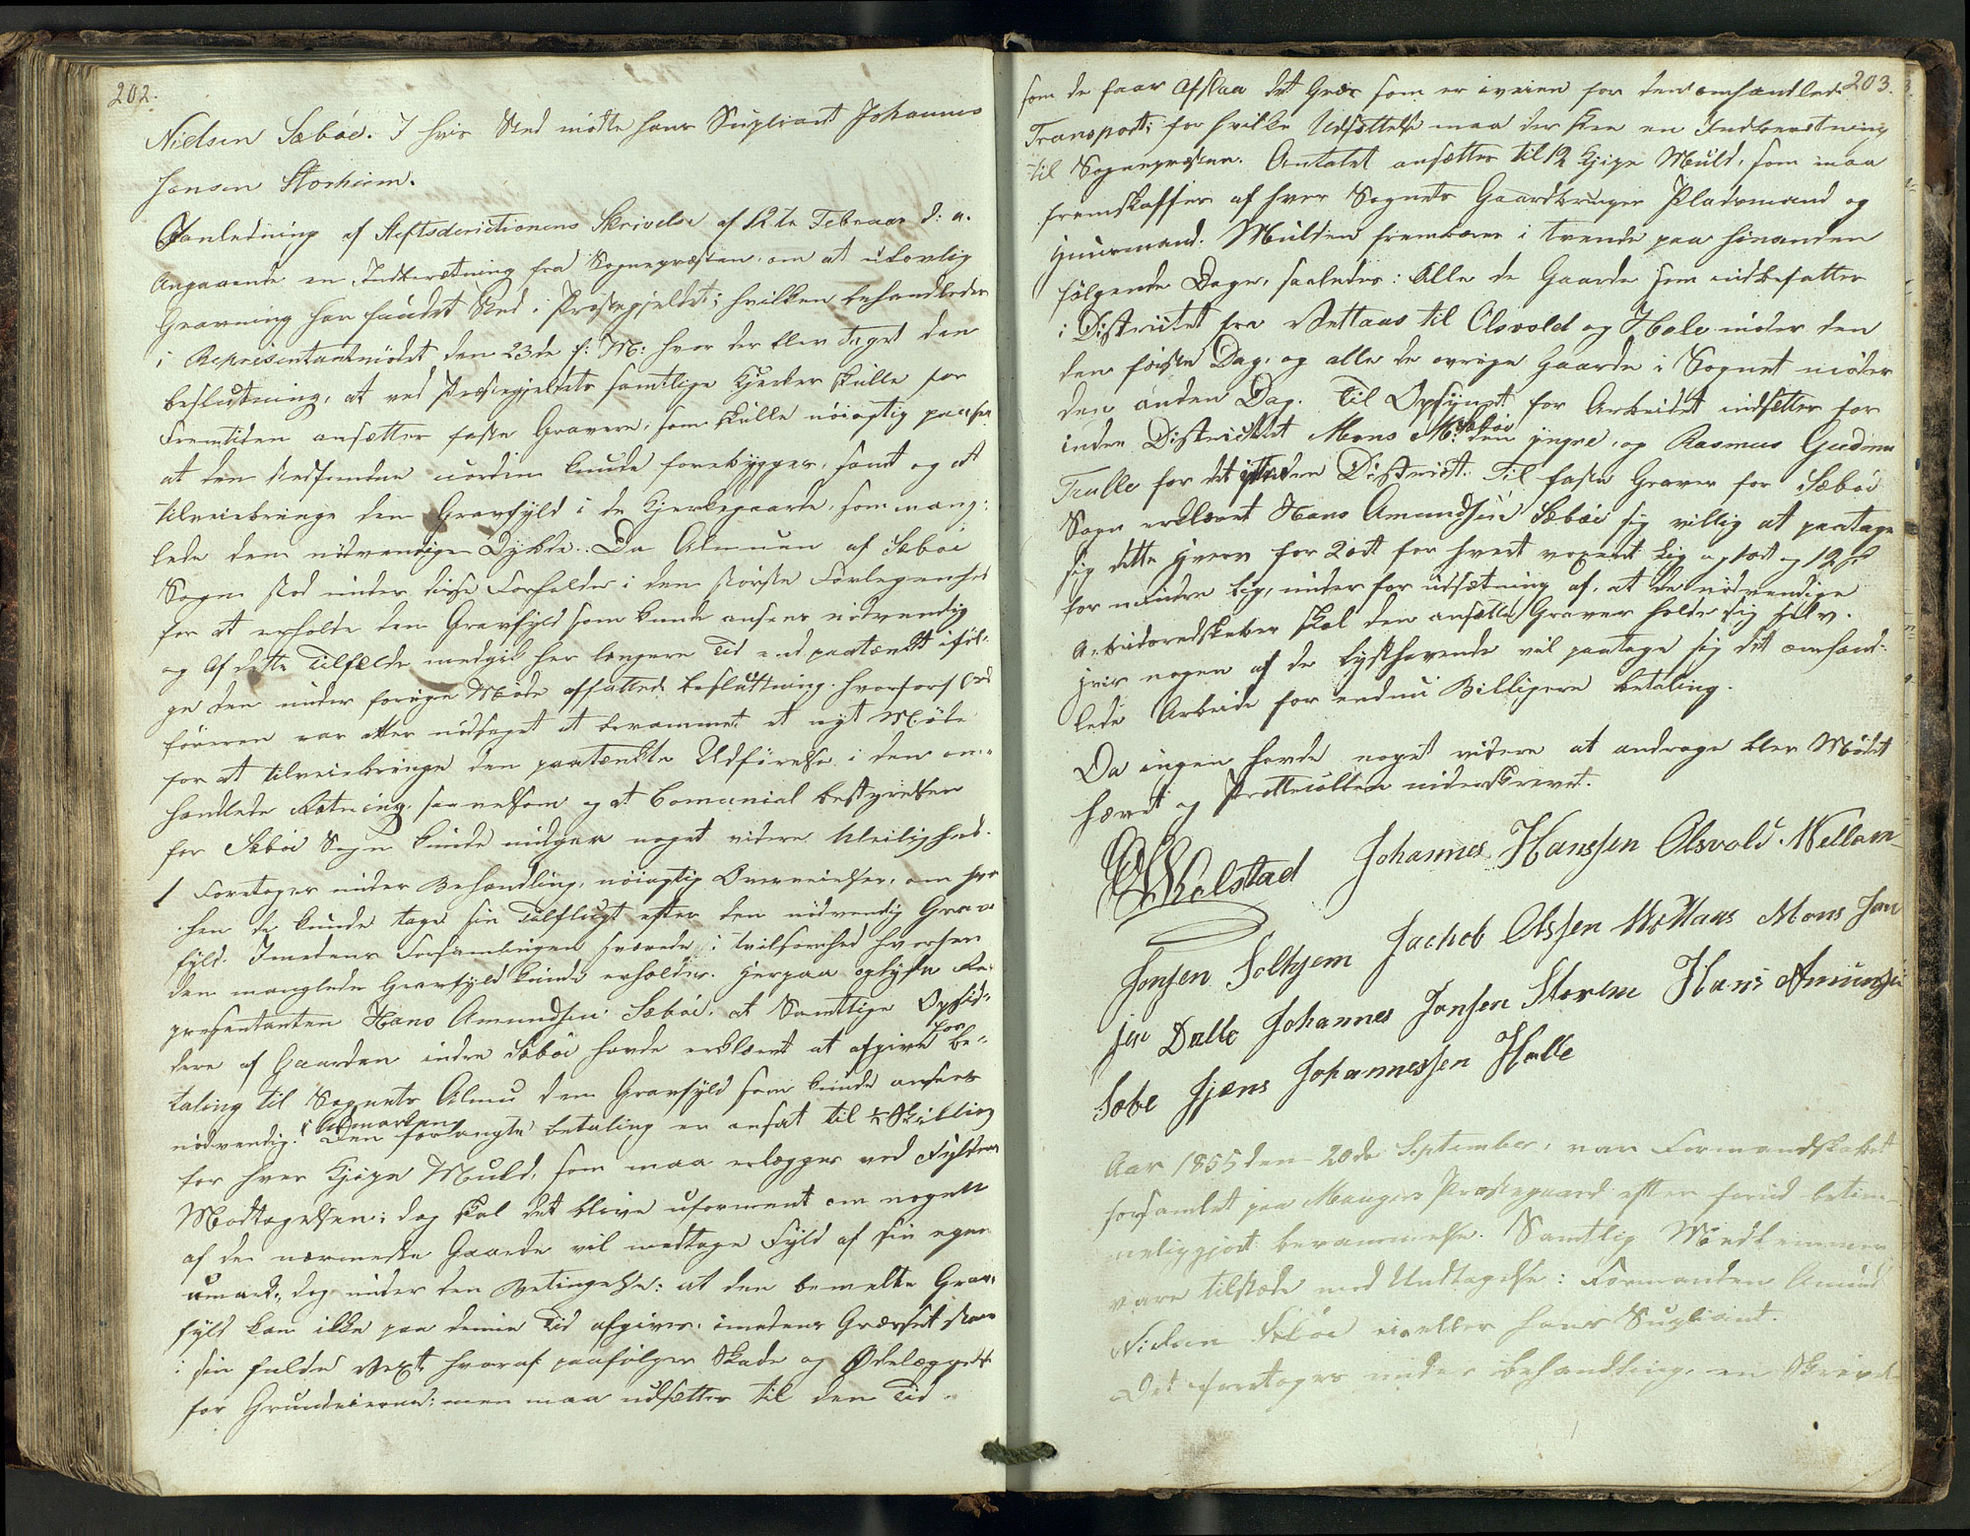 202.
Nielsen Sæbøe. I hvis Sted mødte hans Supliant Johannes
Jansen Storheim.
I anledning af Stiftsderictionens Skrivelse af 12te Februar d: a.
Angaaende en Indberetning fra Sognepræsten, om at ulovlig
Gravning har fundet Sted i Præstegjeldet; hvilken behandledes
i Repræsentantmødet den 23de f: M: hvor der blev taget den
beslutning, at ved Præstegjeldets samtlige Kjerker skulle for
Fremtiden ansætter faste Gravere, som skulle nøiagtig passe
at den Stedfundne uorden kunde forebygges, samt og at
tilveiebringe den Gravfyld i de Kjerkegaarde, som mang:
lede den nødvendige Dybde. Da Almuen af Sæbøe
Sogn stod under disse Forholde i den største Forlegenhed
for at erholde den Gravfyld som kunde ansees nødvendig
og Af dette Tilfælde medgik her længere Tid end paatænkt iføl:
ge den under forige Møde affattede beslutning. hvorfor Ord
føreren var atter nødsaget at beramme et nyt Møde
for at tilveiebringe den paatænkte Udførelse i den om=
handlede Retning, saavelsom og at Comunial bestyrelsen
for Sæbøe Sogn kunde undgaa noget videre Uleilighed.
1 Foretoges under Behandling, nøiagtig Overveielse, om hvor
hen de kunde tage sin Tilflugt efter den nødvendig Grav
fyld. Imedens Forsamlingen svævede i tvilsomhed hvorfra
den manglede Gravfyld kunde erholdes. Herpaa oplyste Re
presentanten Hans Amundsen Sæbøe, at Samtlige Opsid=
dere af Gaarden indre Sæbøe havde erklæret at afgive for be=
taling til Sognets Almue den Gravfyld som kunde ansees
nødvendig. i Udmarken Den forlangte betaling er ansat til ½ Skilling
for hver Kjipe Muld, som maa erlægges ved Fyldens
Modtagelsen; dog skal det blive uforment om nogen
af de nærmeste Gaarde vil modtage Fyld af sin egen
umark, dog under den Betingelse: at den bemelte Grav
fyld kan ikke paa denne Tid afgives, imedens Græsset staar
i sin fulde Vext, hvoraf paafølger Skade og Ødelæggelse
for Grundeierne; men maa udsættes til den Tid
203.
som de faar Afslaa det Græs som er iveien for den omhandlede
Transport; for hvilke Udsættelse maa der skee en Indberetning
til Sognepræsten. Antalet ansættes til 12 Kjipe Muld, som maa
fremskaffes af hver Sognets Gaardbruger Pladsmand og
Huusmand. Mulden frembæres i trende paa hinanden
følgende Dage, saaledes: Alle de Gaarde som indbefattes
i Districtet fra Vettaas til Olsvold og Hole møder den
den første Dag, og alle de øvrige Gaarde i Sognet møder
den anden Dag. Til Opsynet for Arbeidet indsættes for
indre Districtet Mons M: Sæbøe den yngre, og Rasmus Gudm
Tralle for det ytre Distrikt. Til faste Graver for Sæbøe
Sogn erklæret Hans Amundsen Sæbøe sig villig at paatage
sig dette Hverv for 2 ort for hvert voxent Lig og 1 ort og 12 s
for mindre Lig, under forudsætning af, at de nødvendige
Arbeidsredskaber skal den ansatte Graver holde sig selv.
Hvis nogen af de Lysthavende vil paatage sig det omhand:
lede Arbeide for endnu Billigere betaling.
Da ingen havde noget videre at andrage blev Mødet
hævet og Prottocollen underskrevet.
Kolstad Johannes Hanssen Olsvold. Nellam
Jonsen Soltzem Jachob Olssen Wettaas Mons Han
sen Dalle Johannes Jonsen Storem Hans Amunsen
Sobe Hjæns Johannessen Halle
Aar 1855 den 20de September, var Formandskabet
forsamlet paa Mangers Præstegaard efter forud betim-
meliggjort berammelse. Samtlig Medlemmer
vare tilstæde med Undtagelse: Formanden Amund
Nielsen Sæbøe eieller hans Supliant.
Det foretoges under behandling, en Skrivel